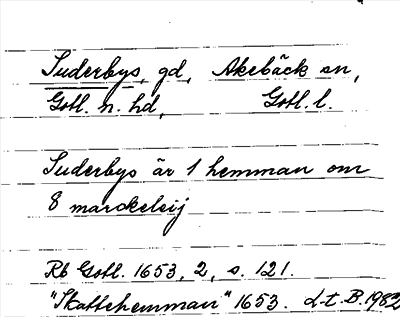 Suderbys, gd, Akebäck sn,
Gotl. n. hd, Gotl. l.
Suderbys är 1 hemman om
8 marckeleij
Rb Gotl. 1653, 2, s. 121.
"Skattehemman" 1653. d. t. B. 1982